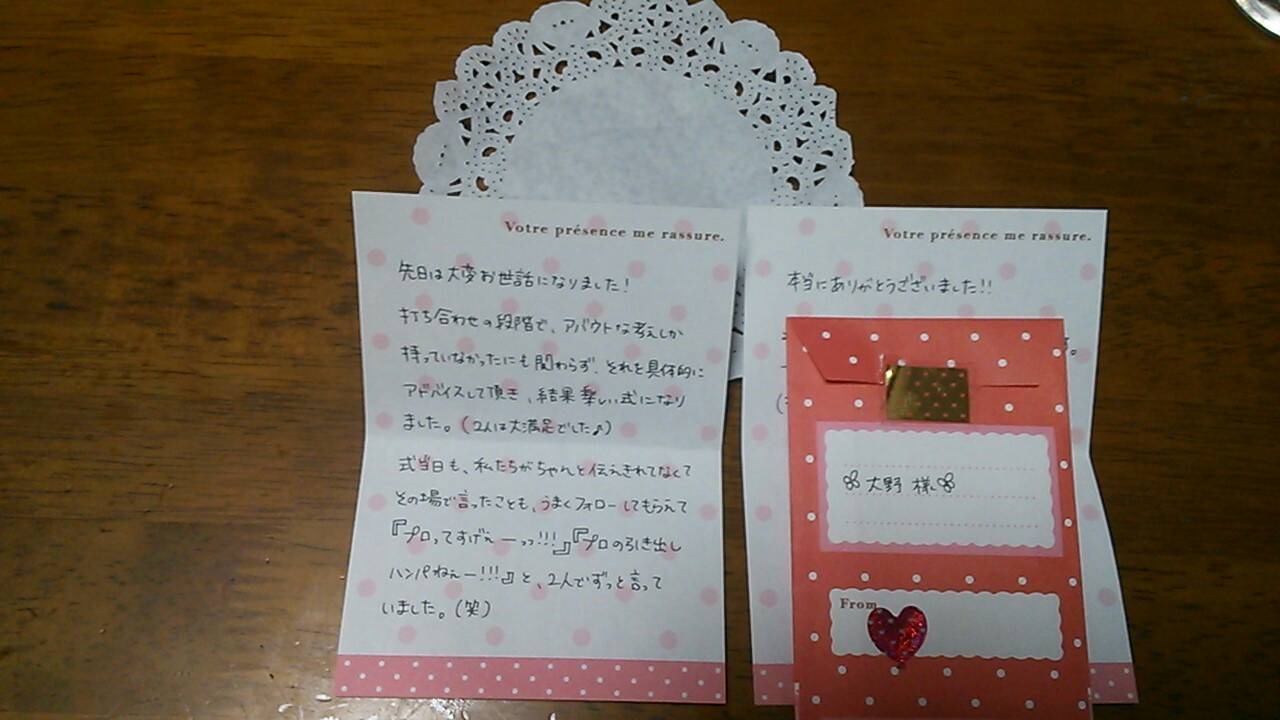 Votre présence me rassure.
先日は大変お世話になりました！
打ち合わせの段階で、アバウトな考えしか
持っていなかったにも関わらず、それを具体的に
アドバイスして頂き、結果楽しい式になり
ました。（2人は大満足でした♪）
式当日も、私たちがちゃんと伝えきれてなくて
その場で言ったことも、うまくフォローしてもらえて
『プロってすげぇーっっ!!!』『プロの引き出し
ハンパねぇー!!!』と、2人でずっと言って
いました。（笑）
Votre présence me rassure.
本当にありがとうございました!!
大野 様
From